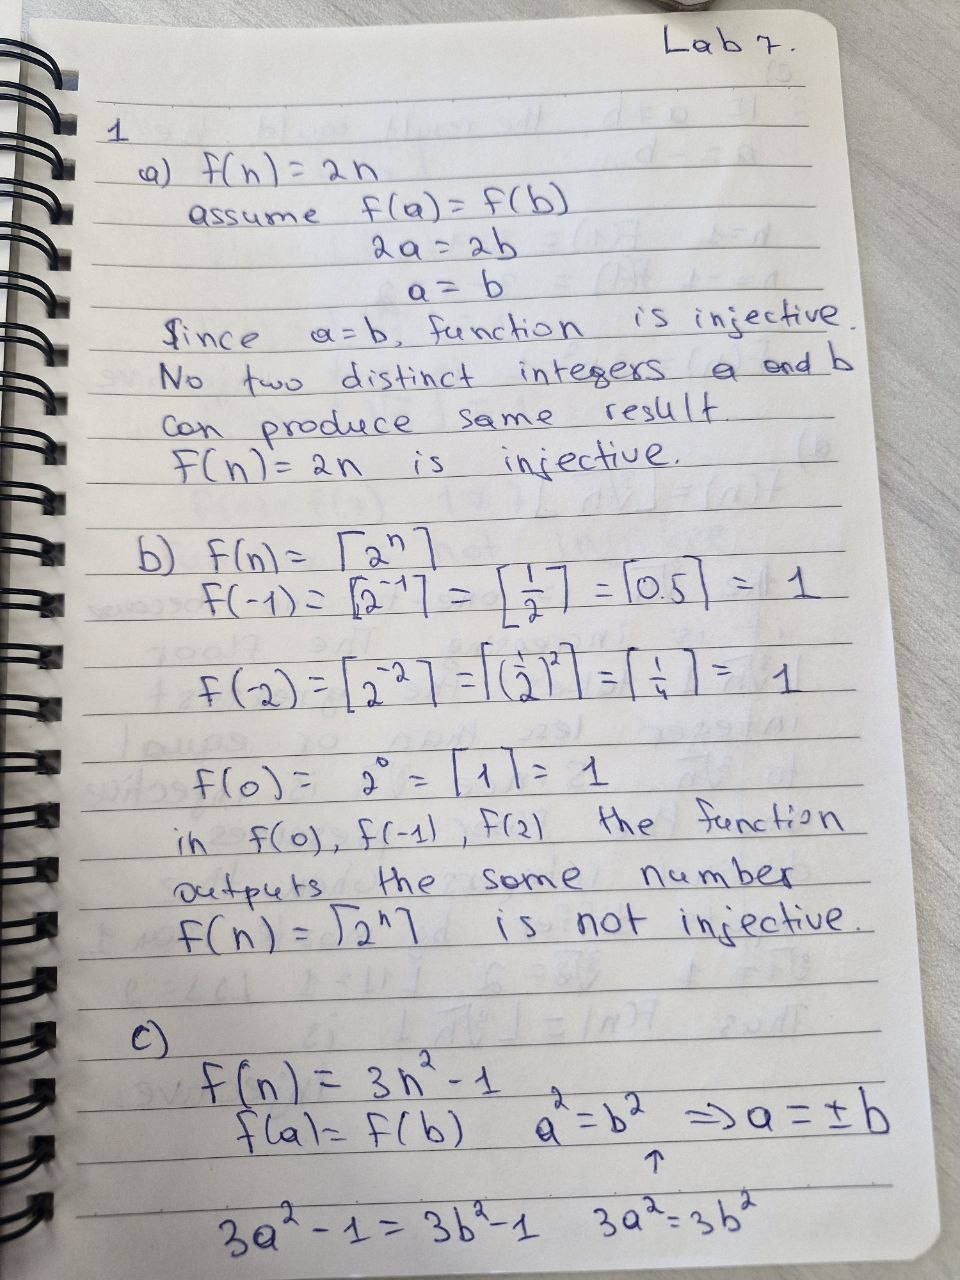 Lab 7.
1
a) f(n) = 2n
assume f(a) = f(b)
2a = 2b
a = b
Since a=b, function is injective.
No two distinct integers a and b
can produce same result.
F(n) = 2n is injective.
b) F(n) = ⌈2ⁿ⌉
F(-1) = ⌈2⁻¹⌉ = ⌈1/2⌉ = ⌈0.5⌉ = 1
F(-2) = ⌈2⁻²⌉ = ⌈(1/2)²⌉ = ⌈1/4⌉ = 1
f(0) = 2⁰ = ⌈1⌉ = 1
in f(0), f(-1), f(2) the function
outputs the same number
F(n) = ⌈2ⁿ⌉ is not injective.
c)
f(n) = 3n² - 1
f(a) = f(b) a² = b² => a = ± b
↑
3a² - 1 = 3b² - 1 3a² = 3b²